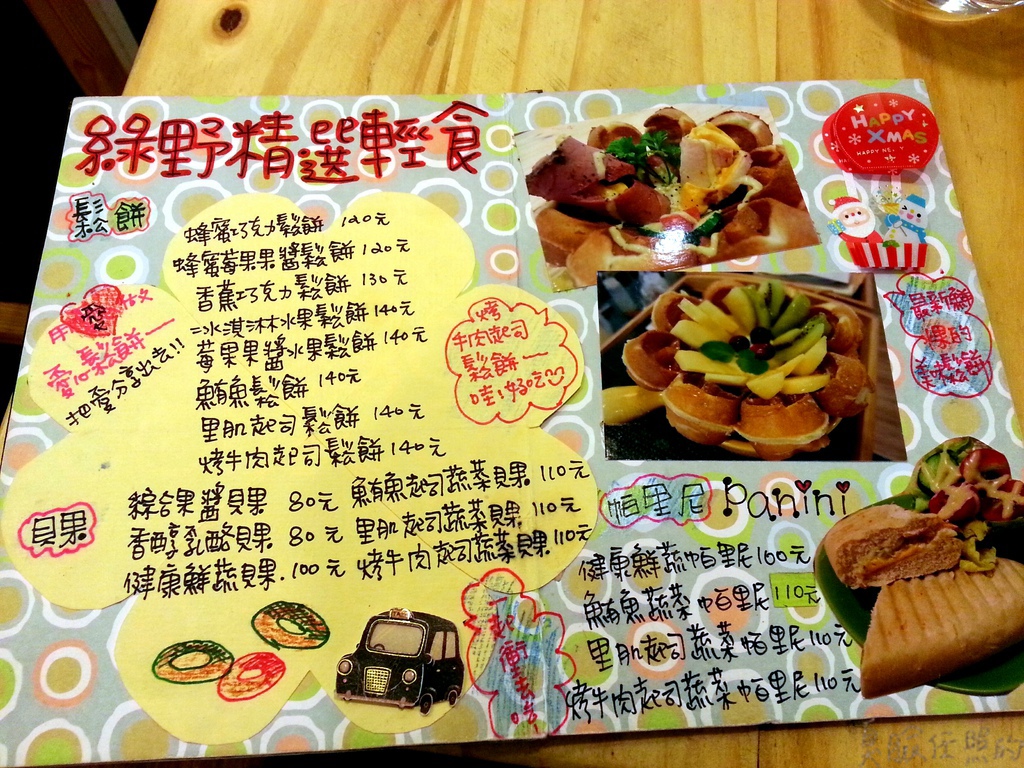 綠野精選輕食
鬆餅
蜂蜜巧克力鬆餅 120元
蜂蜜莓果果醬鬆餅 120元
香蕉巧克力鬆餅 130元
冰淇淋水果鬆餅 140元
莓果果醬水果鬆餅 140元
鮪魚鬆餅 140元
里肌起司鬆餅 140元
烤牛肉起司鬆餅 140元
用愛做
愛心鬆餅一
把愛分享出去!!
烤
牛肉起司
鬆餅一
哇!好吃
貝果
綜合果醬貝果 80元
香醇乳酪貝果 80元
健康鮮蔬貝果. 100元
鮪魚起司蔬菜貝果 110元
里肌起司蔬菜貝果. 110元
烤牛肉起司蔬菜貝果 110元
一起衝去
HAPPY
XMAS
最新鮮
棵的
帕里尼 Panini
健康鮮蔬帕里尼 100元
鮪魚蔬菜帕里尼 110元
里肌起司蔬菜帕里尼 110元
烤牛肉起司蔬菜帕里尼 110元